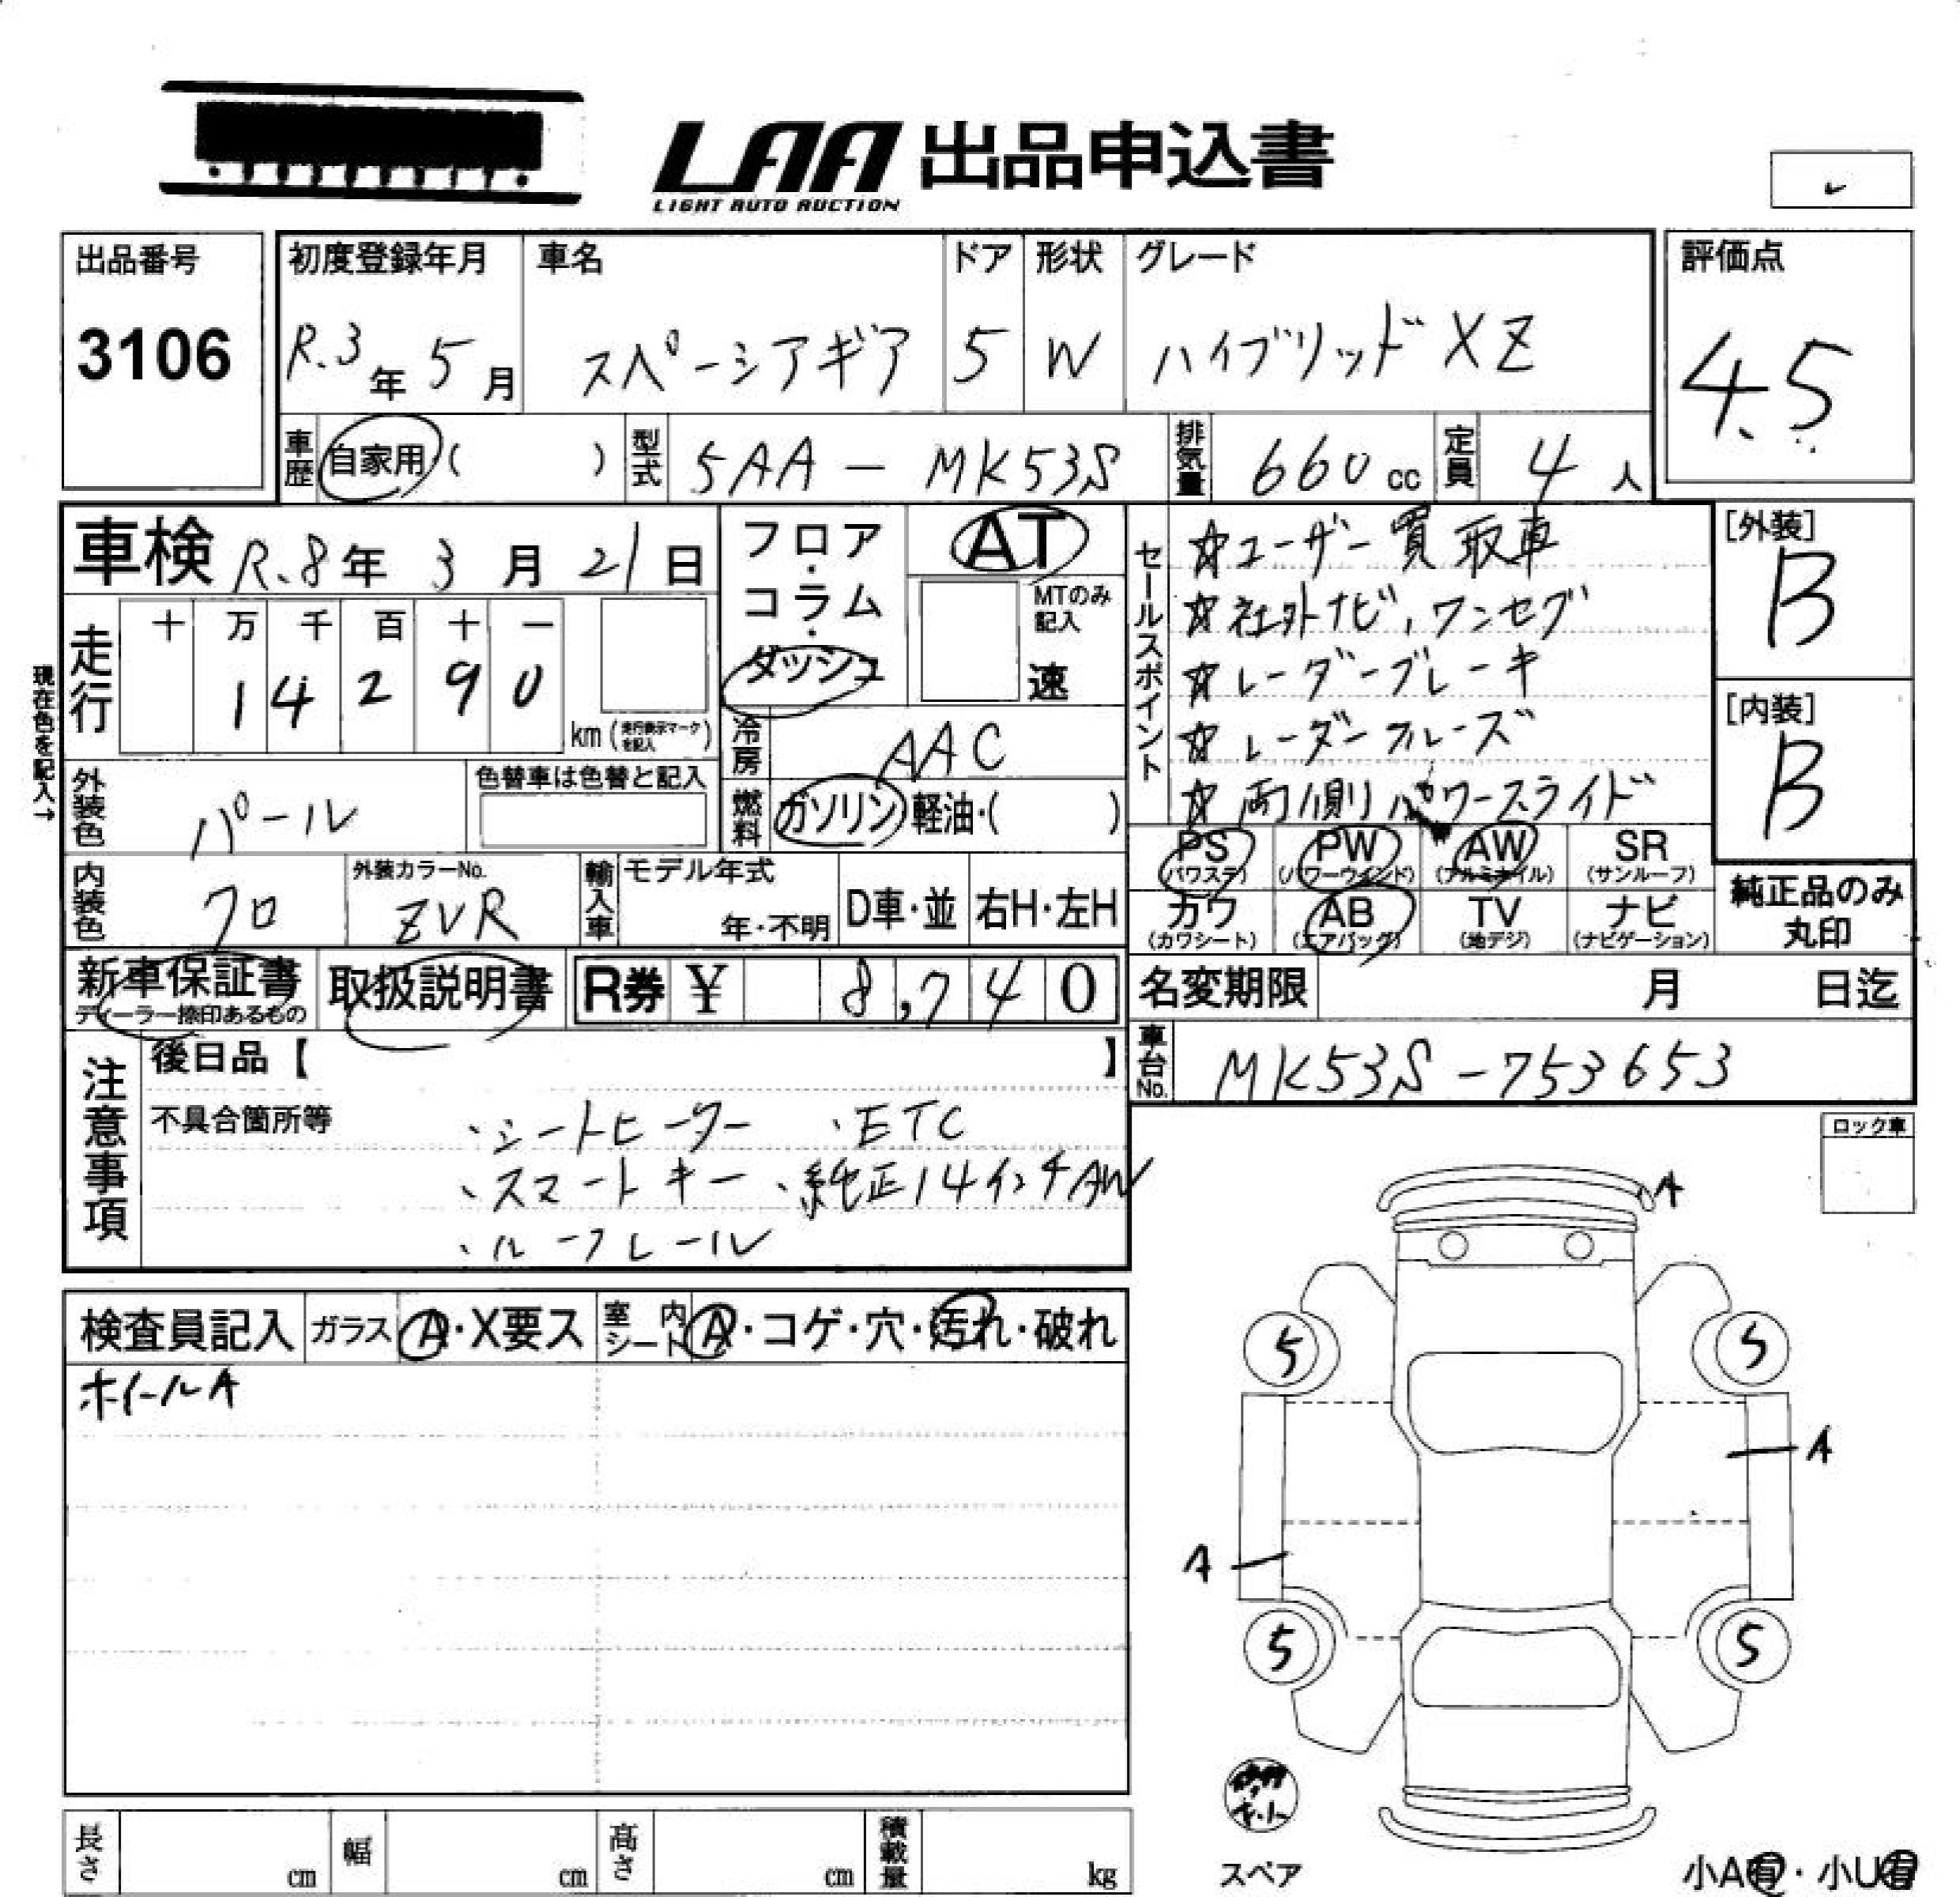 LAA 出品申込書
LIGHT AUTO AUCTION
出品番号
3106
初度登録年月
R.3年5月
車名
スペーシアギア
ドア
5
形状
W
グレード
ハイブリッドXZ
評価点
4.5
車歴
自家用( )
型式
5AA-MK53S
排気量
660cc
定員
4人
車検 R.8年3月21日
走行
十 万 千 百 十 一
1 4 2 9 0
km(走行表示マークを記入)
現在色を記入→
外装色
パール
色替車は色替と記入
内装色
クロ
外装カラーNo.
ZVR
輸入車
モデル年式
年・不明
D車・並
右H・左H
フロア・コラム・ダッシュ
AT
MTのみ記入
速
冷房
AAC
燃料
ガソリン 軽油・( )
セールスポイント
☆ユーザー買取車
☆社外ナビ,ワンセグ
☆レーダーブレーキ
☆レーダークルーズ
☆両側パワースライド
[外装]
B
[内装]
B
PS (パワステ)
PW (パワーウインド)
AW (アルミホイル)
SR (サンルーフ)
カワ (カワシート)
AB (エアバッグ)
TV (地デジ)
ナビ (ナビゲーション)
純正品のみ丸印
新車保証書
ディーラー捺印あるもの
取扱説明書
R券 ¥ 8,740
名変期限 月 日迄
車台No.
MK53S-753653
注意事項
後日品【 】
不具合箇所等
・シートヒーター ・ETC
・スマートキー ・純正14インチAW
・ルーフレール
ロック車
検査員記入
ガラス
A・X要ス
室内シート
A・コゲ・穴・汚れ・破れ
ホイールA
A
5
5
A
A
5
5
スペア
小A有・小U有
長さ cm
幅 cm
高さ cm
積載量 kg